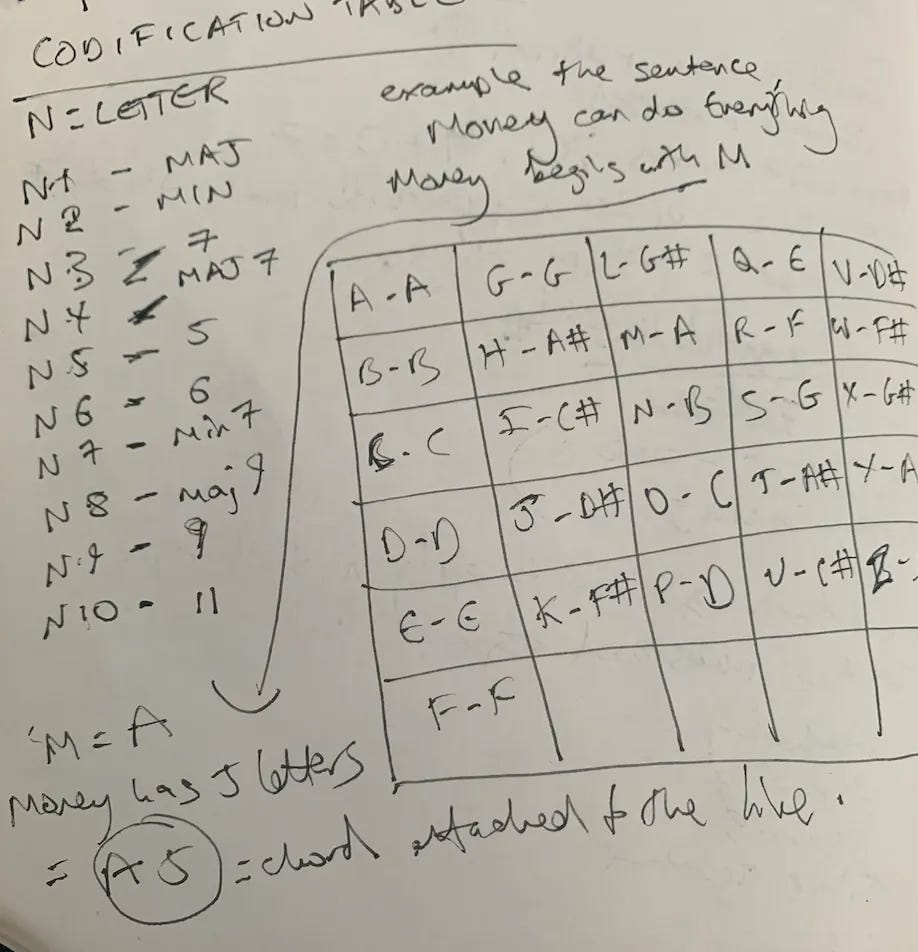 CODIFICATION TABLE
N=LETTER
N1 - MAJ
N2 - MIN
N3 - 7
N4 - MAJ7
N5 - 5
N6 - 6
N7 - Min7
N8 - Maj9
N9 - 9
N10 - 11
example the sentence,
Money can do Everything
Money begins with M
A-A G-G L-G# Q-E V-D#
B-B H-A# M-A R-F W-F#
C-C I-C# N-B S-G X-G#
D-D J-D# O-C T-A# Y-A
E-E K-F# P-D U-C# Z-
F-F
M=A
Money has 5 letters
= A5 = chord attached to the line.